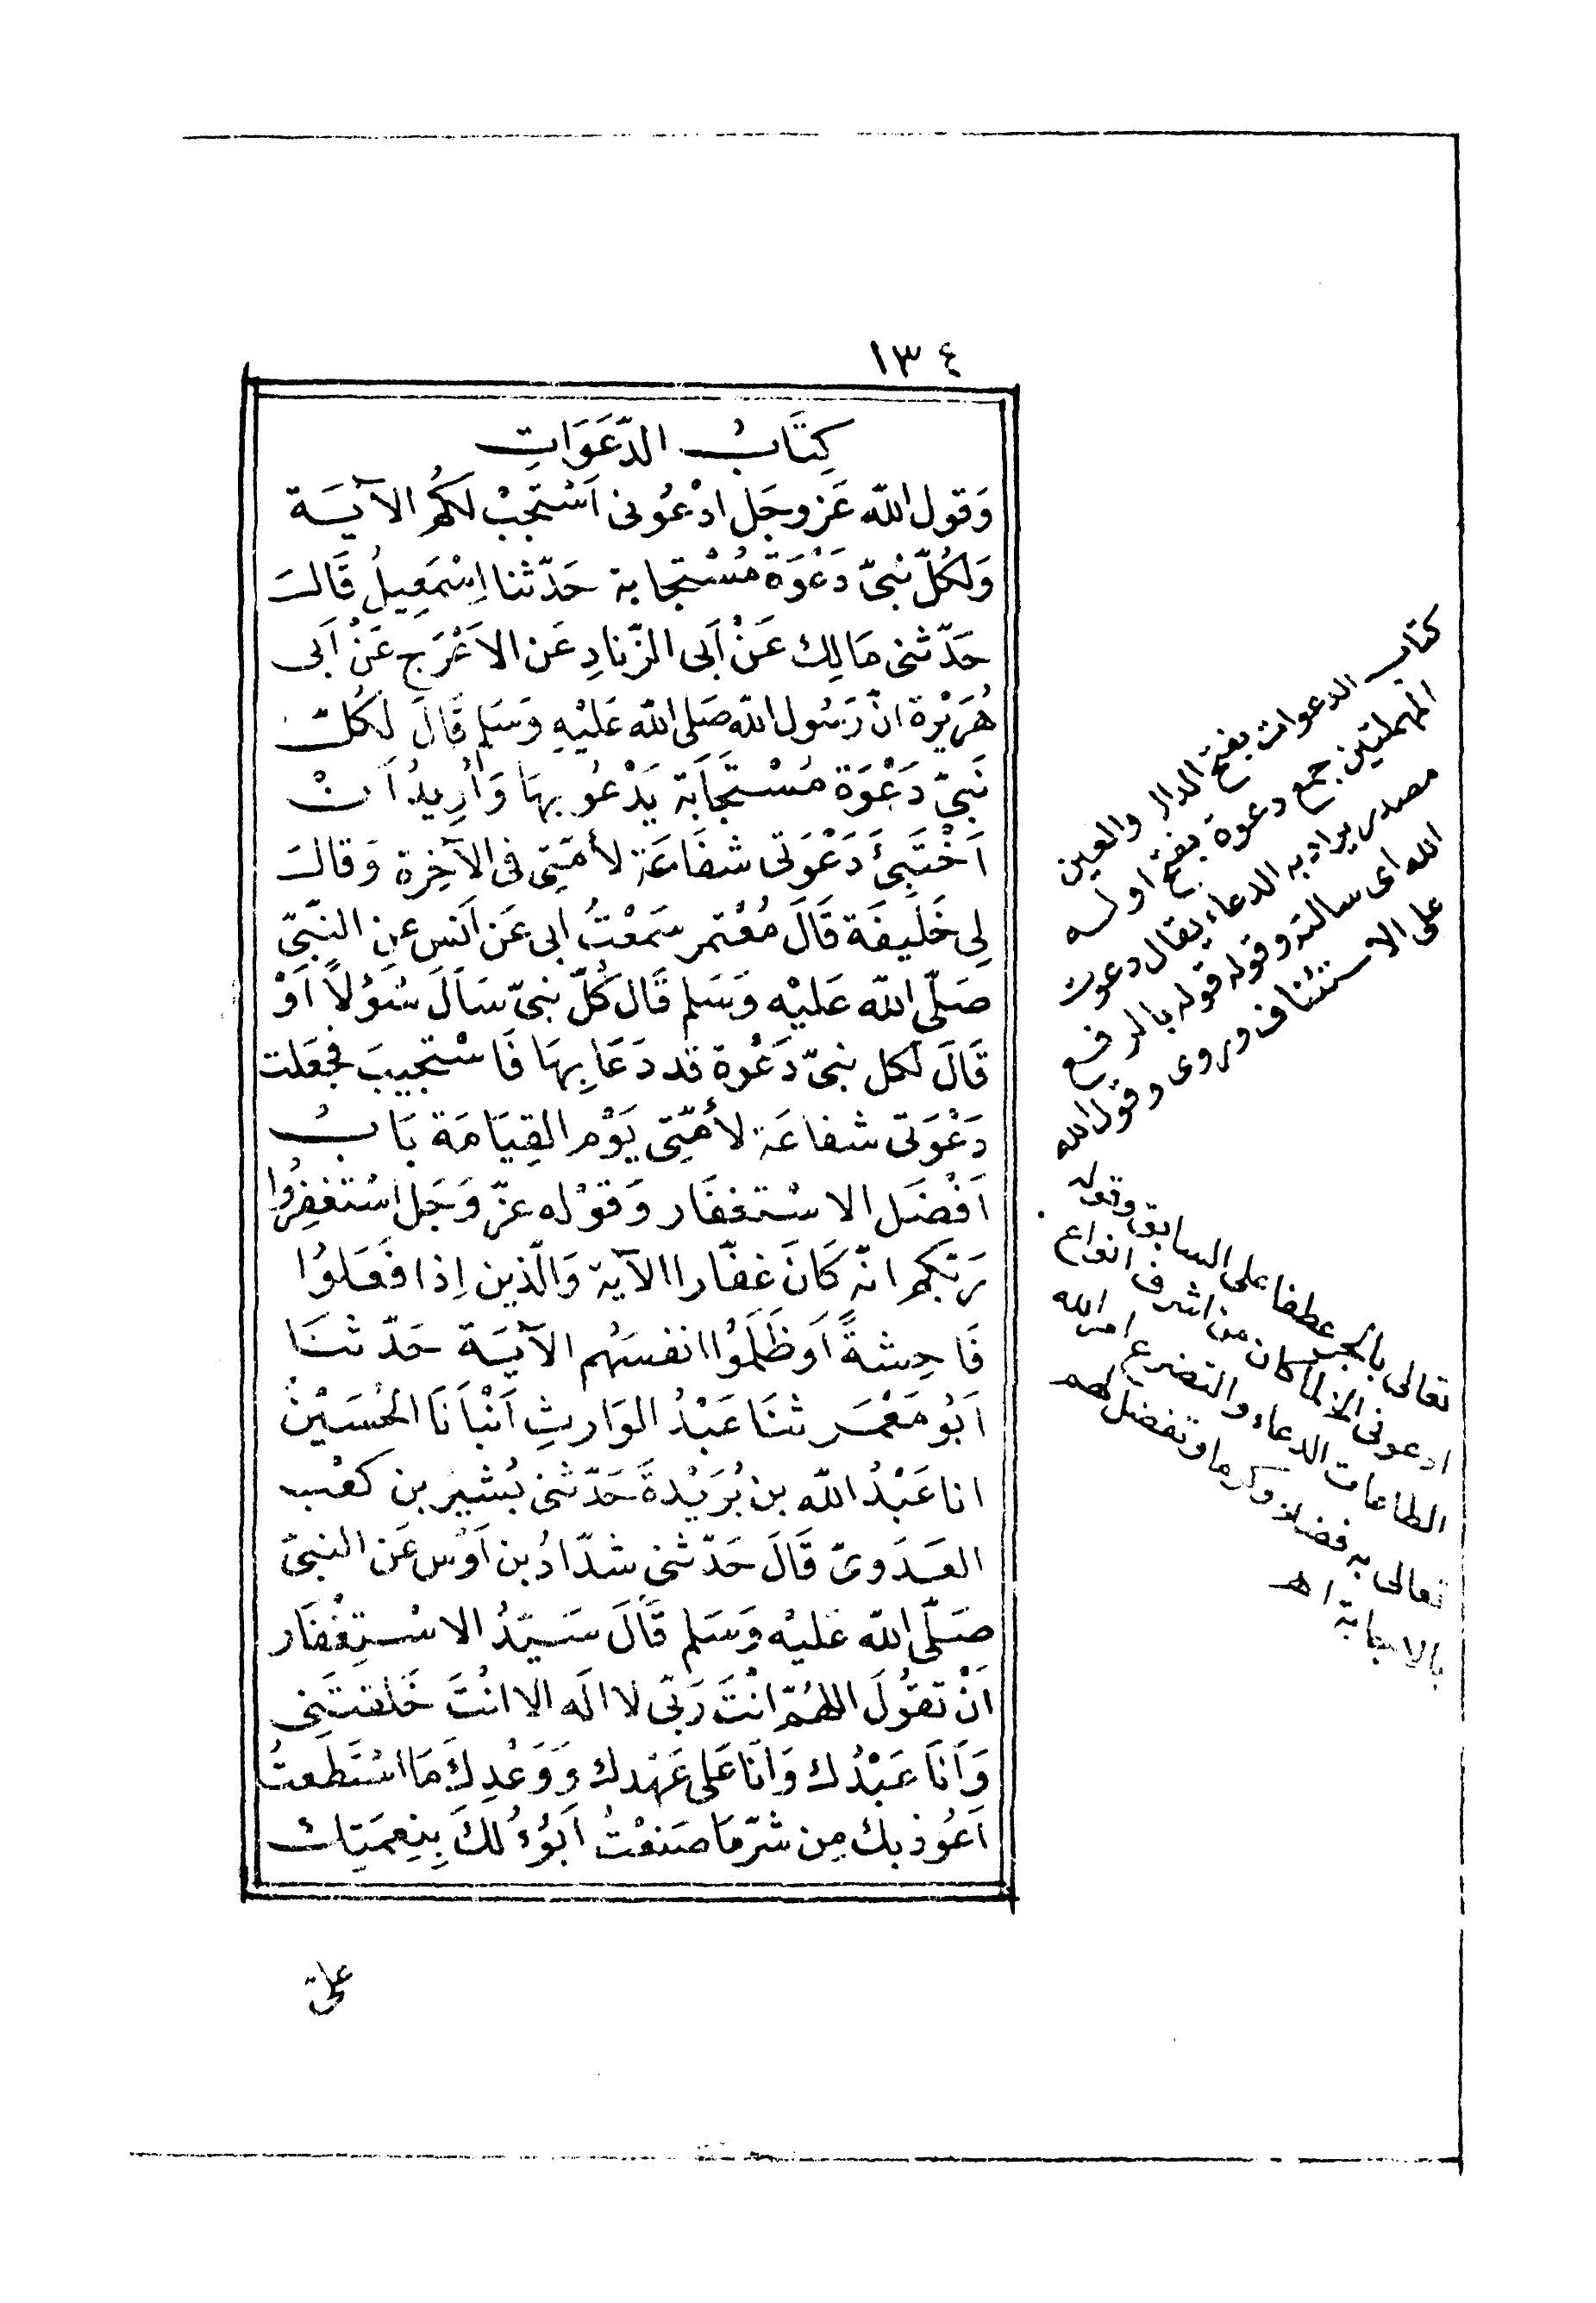 ١٣٤
كِتَابُ الدَّعَوَاتِ
وَقول الله عَز وجَل ادْعُونى اَسْتَجِبْ لَكُمُ الآيَـة
وَلكُلّ نبىّ دَعْوَة مُسْتجابة حَدّثنا اِسْمَعِيلُ قَالَ
حَدّثنى مَالِك عَنْ اَبى الزّنادِ عَن الاَعْرَج عَنْ اَبى
هُرَيْرة انّ رَسُول الله صَلى الله عَليْهِ وَسَلم قَالَ لكُلّ
نَبىّ دَعْوَة مُسْتَجَابَة يَدْعُو بهَا وَاُرِيدُ اَنْ
اَخْتَبِئَ دَعْوَتى شفَاعَة لأمّتِى فى الآخِرة وَقالَ
لِى خَلِيفَة قَالَ مُعْتمر سَمَعْتُ ابى عَن اَنس عن النّبىّ
صَلّى الله عَليْه وَسَلم قَال كُلّ نبىّ سَاَلَ سُؤلاً اَوْ
قَالَ لكل نبىّ دَعْوة قد دَعَا بِهَا فَاسْتجيبَ فجَعَلت
دَعْوَتى شفاعَة لأمّتِى يَوْم القِيَامَة بَابُ
اَفْضَل الاسْتغفَار وَقوْله عزّ وَجَل اسْتَغفِرُوا
رَبّكم انّه كَانَ غفّارا الآية وَالّذين اِذا فَعَلوُا
فَاحِشةً اَو ظَلَمُوا انفسَهُم الآيَـة حَدّثنَا
اَبُو مَعْمَر ثنَا عَبْدُ الوَارِثِ اَنْبَاَنَا الحُسَيْنُ
انا عَبْدُ الله بن بُرَيْدةَ حَدّثنى بُشيْر بن كعْب
العَدَوىّ قَالَ حَدّثنى شدّادُ بن اَوْس عَن النبىّ
صَلّى الله عَليْه وَسَلم قَالَ سَيّدُ الاسْتِغْفَار
اَنْ تقوُلَ اللهُمّ انْتَ رَبّى لا اله الا انْتَ خَلقتَنِى
وَاَنَا عَبْدُك وَانَا عَلى عَهْدك وَوَعْدِكَ مَا اسْتَطَعتُ
اَعُوذ بك مِن شرّ مَا صَنعْتُ اَبُوُءُ لكَ بِنِعمَتِك
علىّ
كتاب الدعوات بفتح الدال والعين
المهملتين جمع دعوة بفتح اوله
مصدر يراد به الدعاء يقال دعوت
الله اى سالته وقوله قوله بالرفع
على الاستئناف وروى وقول الله
تعالى بالجر عطفا على السابق وقوله
ادعونى الخ لما كان من اشرف انواع
الطاعات الدعاء والتضرع امر الله
تعالى به فضلا وكرما وتفضل لهم
بالاجابة اهـ